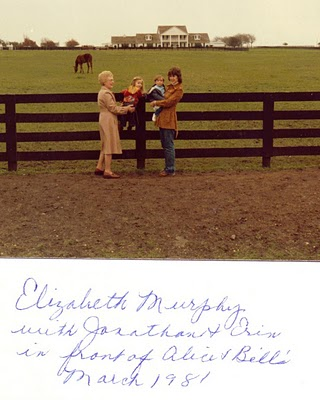 Elizabeth Murphy
with Jonathan & Erin
in front of Alice & Bill's
March 1981